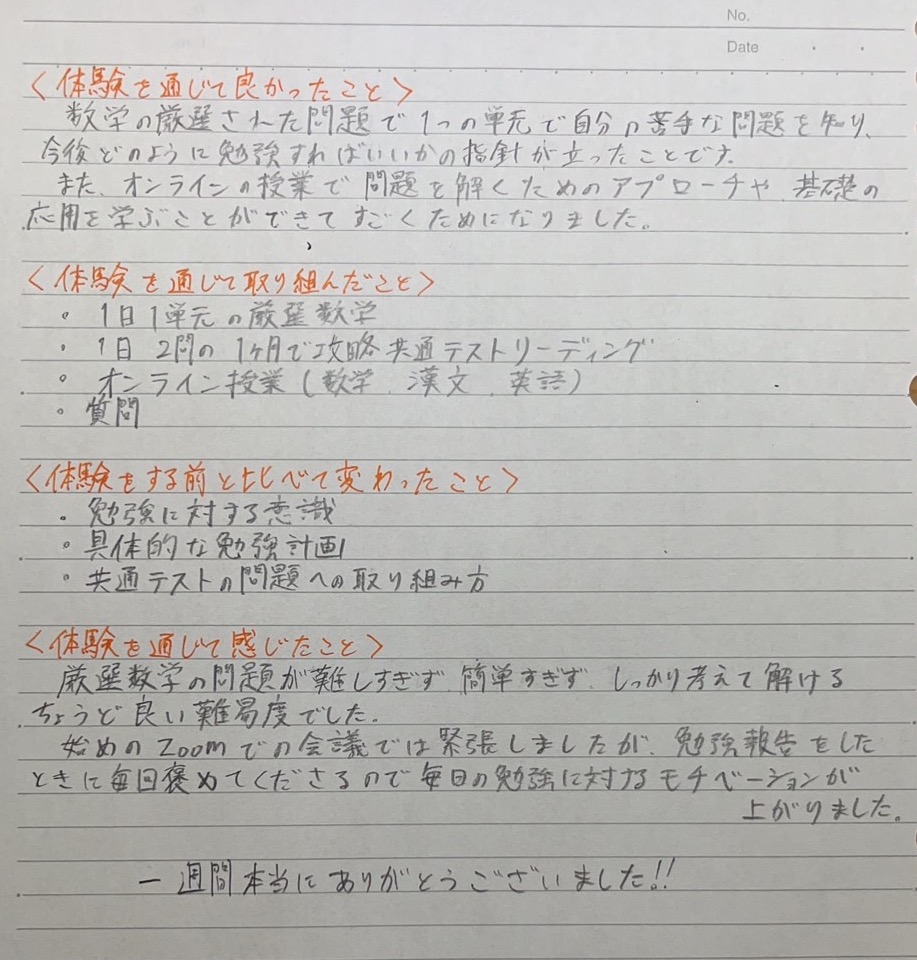 No.
Date
＜体験を通じて良かったこと＞
数学の厳選された問題で1つの単元で自分の苦手な問題を知り、
今後どのように勉強すればいいかの指針が立ったことです。
また、オンラインの授業で問題を解くためのアプローチや、基礎の
応用を学ぶことができてすごくためになりました。
＜体験を通じて取り組んだこと＞
・1日1単元の厳選数学
・1日2問の1ヶ月で攻略共通テストリーディング
・オンライン授業（数学、漢文、英語）
・質問
＜体験をする前と比べて変わったこと＞
・勉強に対する意識
・具体的な勉強計画
・共通テストの問題への取り組み方
＜体験を通じて感じたこと＞
厳選数学の問題が難しすぎず、簡単すぎず、しっかり考えて解ける
ちょうど良い難易度でした。
始めのZoomでの会議では緊張しましたが、勉強報告をした
ときに毎回褒めてくださるので毎日の勉強に対するモチベーションが
上がりました。
一週間本当にありがとうございました!!